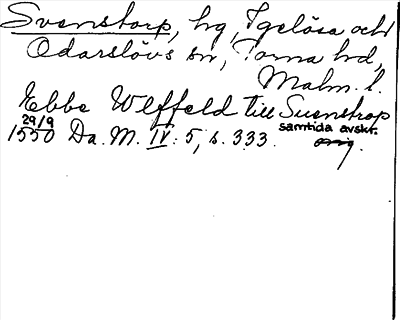 Svenstorp, hg, Igelösa och
Odarslövs sn, Torna hd,
Malm. l.
Ebbe Wlffeld till Suenstrop
29/9 samtida avskr.
1550 Da. M. IV: 5, s. 333.